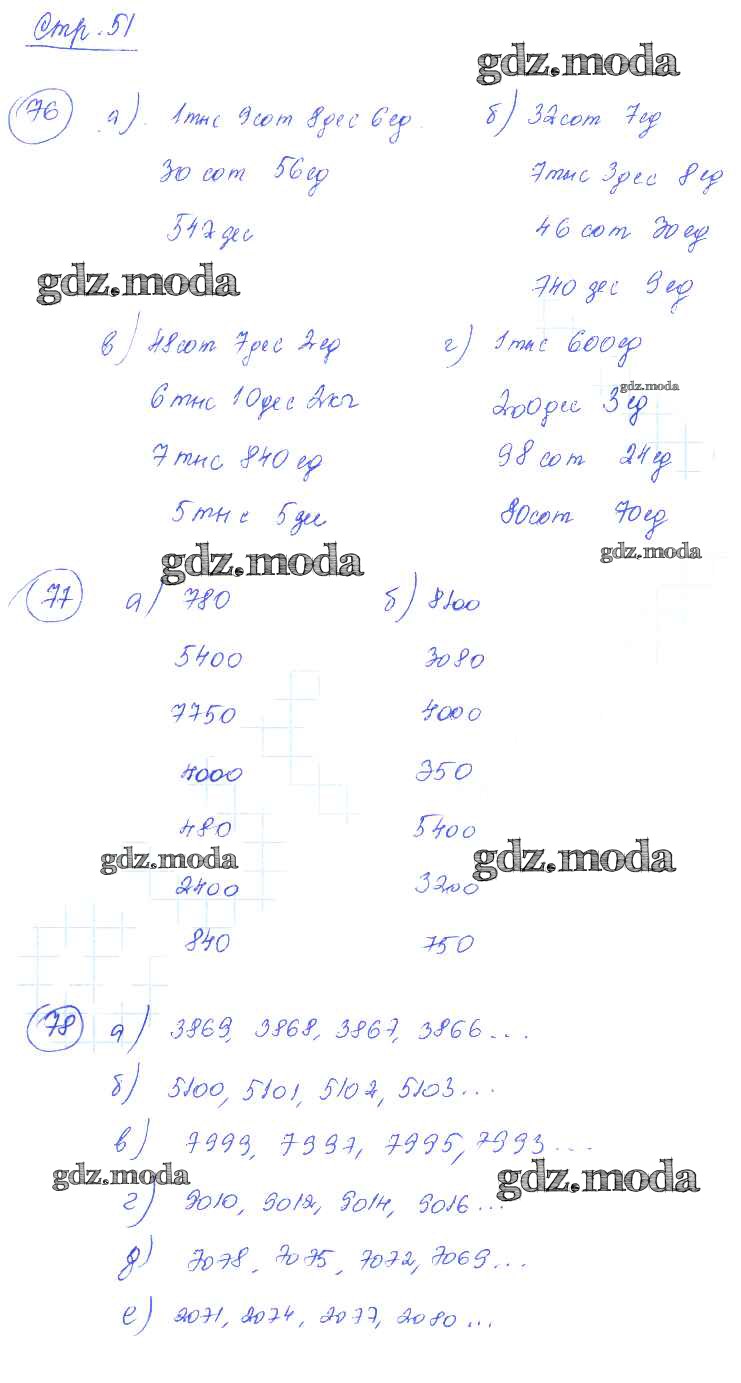 Стр. 51
gdz.moda
76 а) 1тыс 9сот 8дес 6ед. б) 32сот 7ед
30 сот 56ед 7тыс 3дес 8ед
547дес 46 сот 30ед
gdz.moda
740 дес 9ед
в) 48сот 7дес 2ед г) 1тыс 600ед
gdz.moda
6тыс 10дес 2кг 200дес 3ед
7тыс 840ед 98сот 24ед
5тыс 5дес 80сот 70ед
gdz.moda gdz.moda
77 а) 780 б) 8100
5400 3080
7750 4000
4000 350
480 5400
gdz.moda gdz.moda
2400 3200
840 750
78 а) 3869, 3868, 3867, 3866...
б) 5100, 5101, 5102, 5103...
в) 7999, 7997, 7995, 7993...
gdz.moda gdz.moda
г) 9010, 9012, 9014, 9016...
д) 7078, 7075, 7072, 7069...
е) 2071, 2074, 2077, 2080...